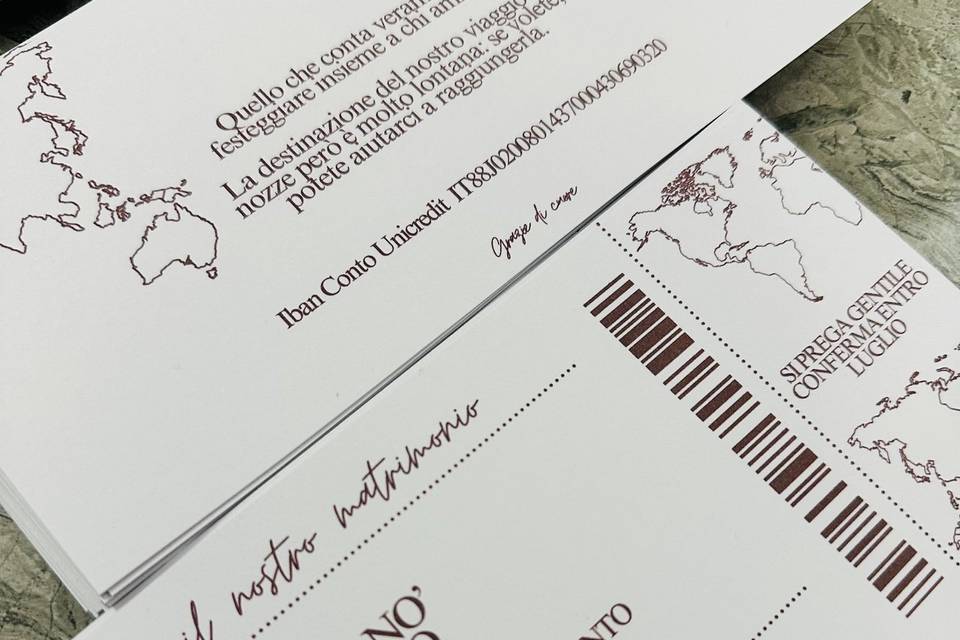 Quello che conta
festeggiare insieme a chi
La destinazione del nostro viaggio
nozze però è molto lontana: se volete,
potete aiutarci a raggiungerla.
Iban Conto Unicredit IT88J0200801437000430690320
Grazie di cuore
SI PREGA GENTILE
CONFERMA ENTRO
LUGLIO
il nostro matrimonio